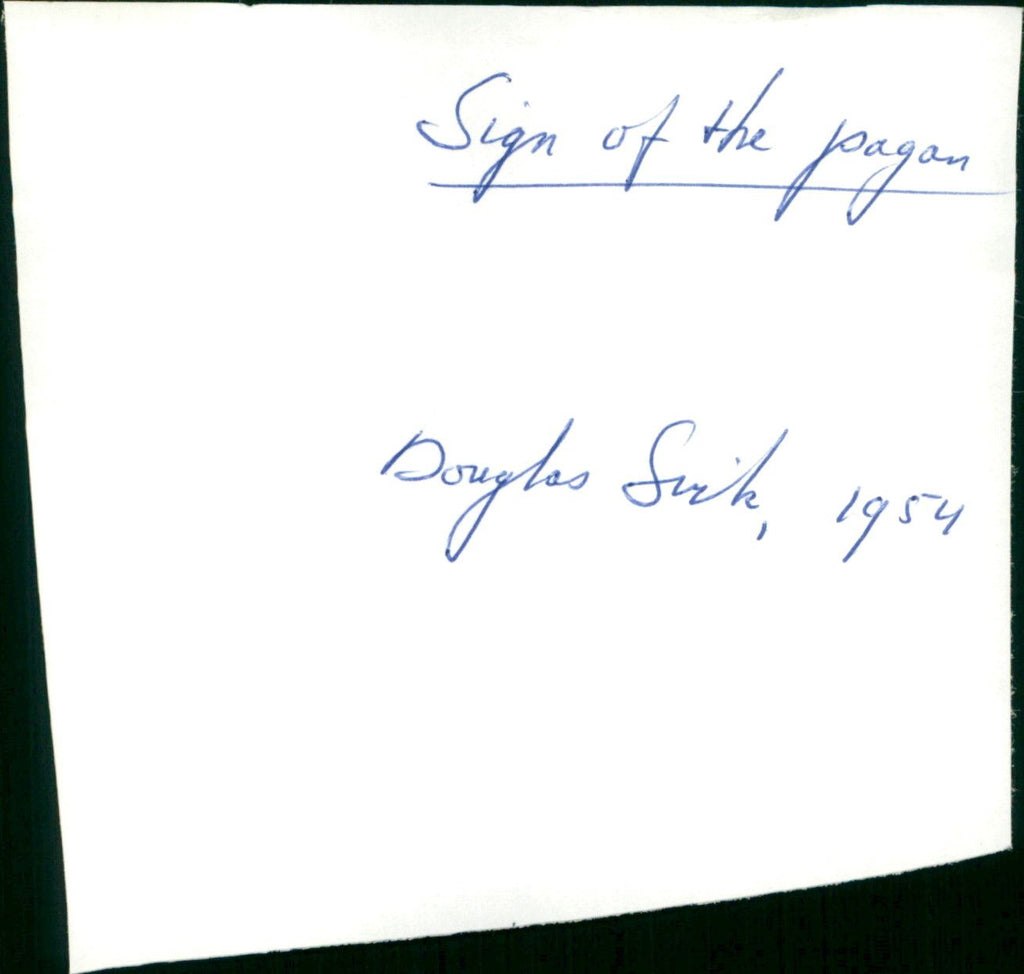 Sign of the pagan
Douglas Sirk, 1954